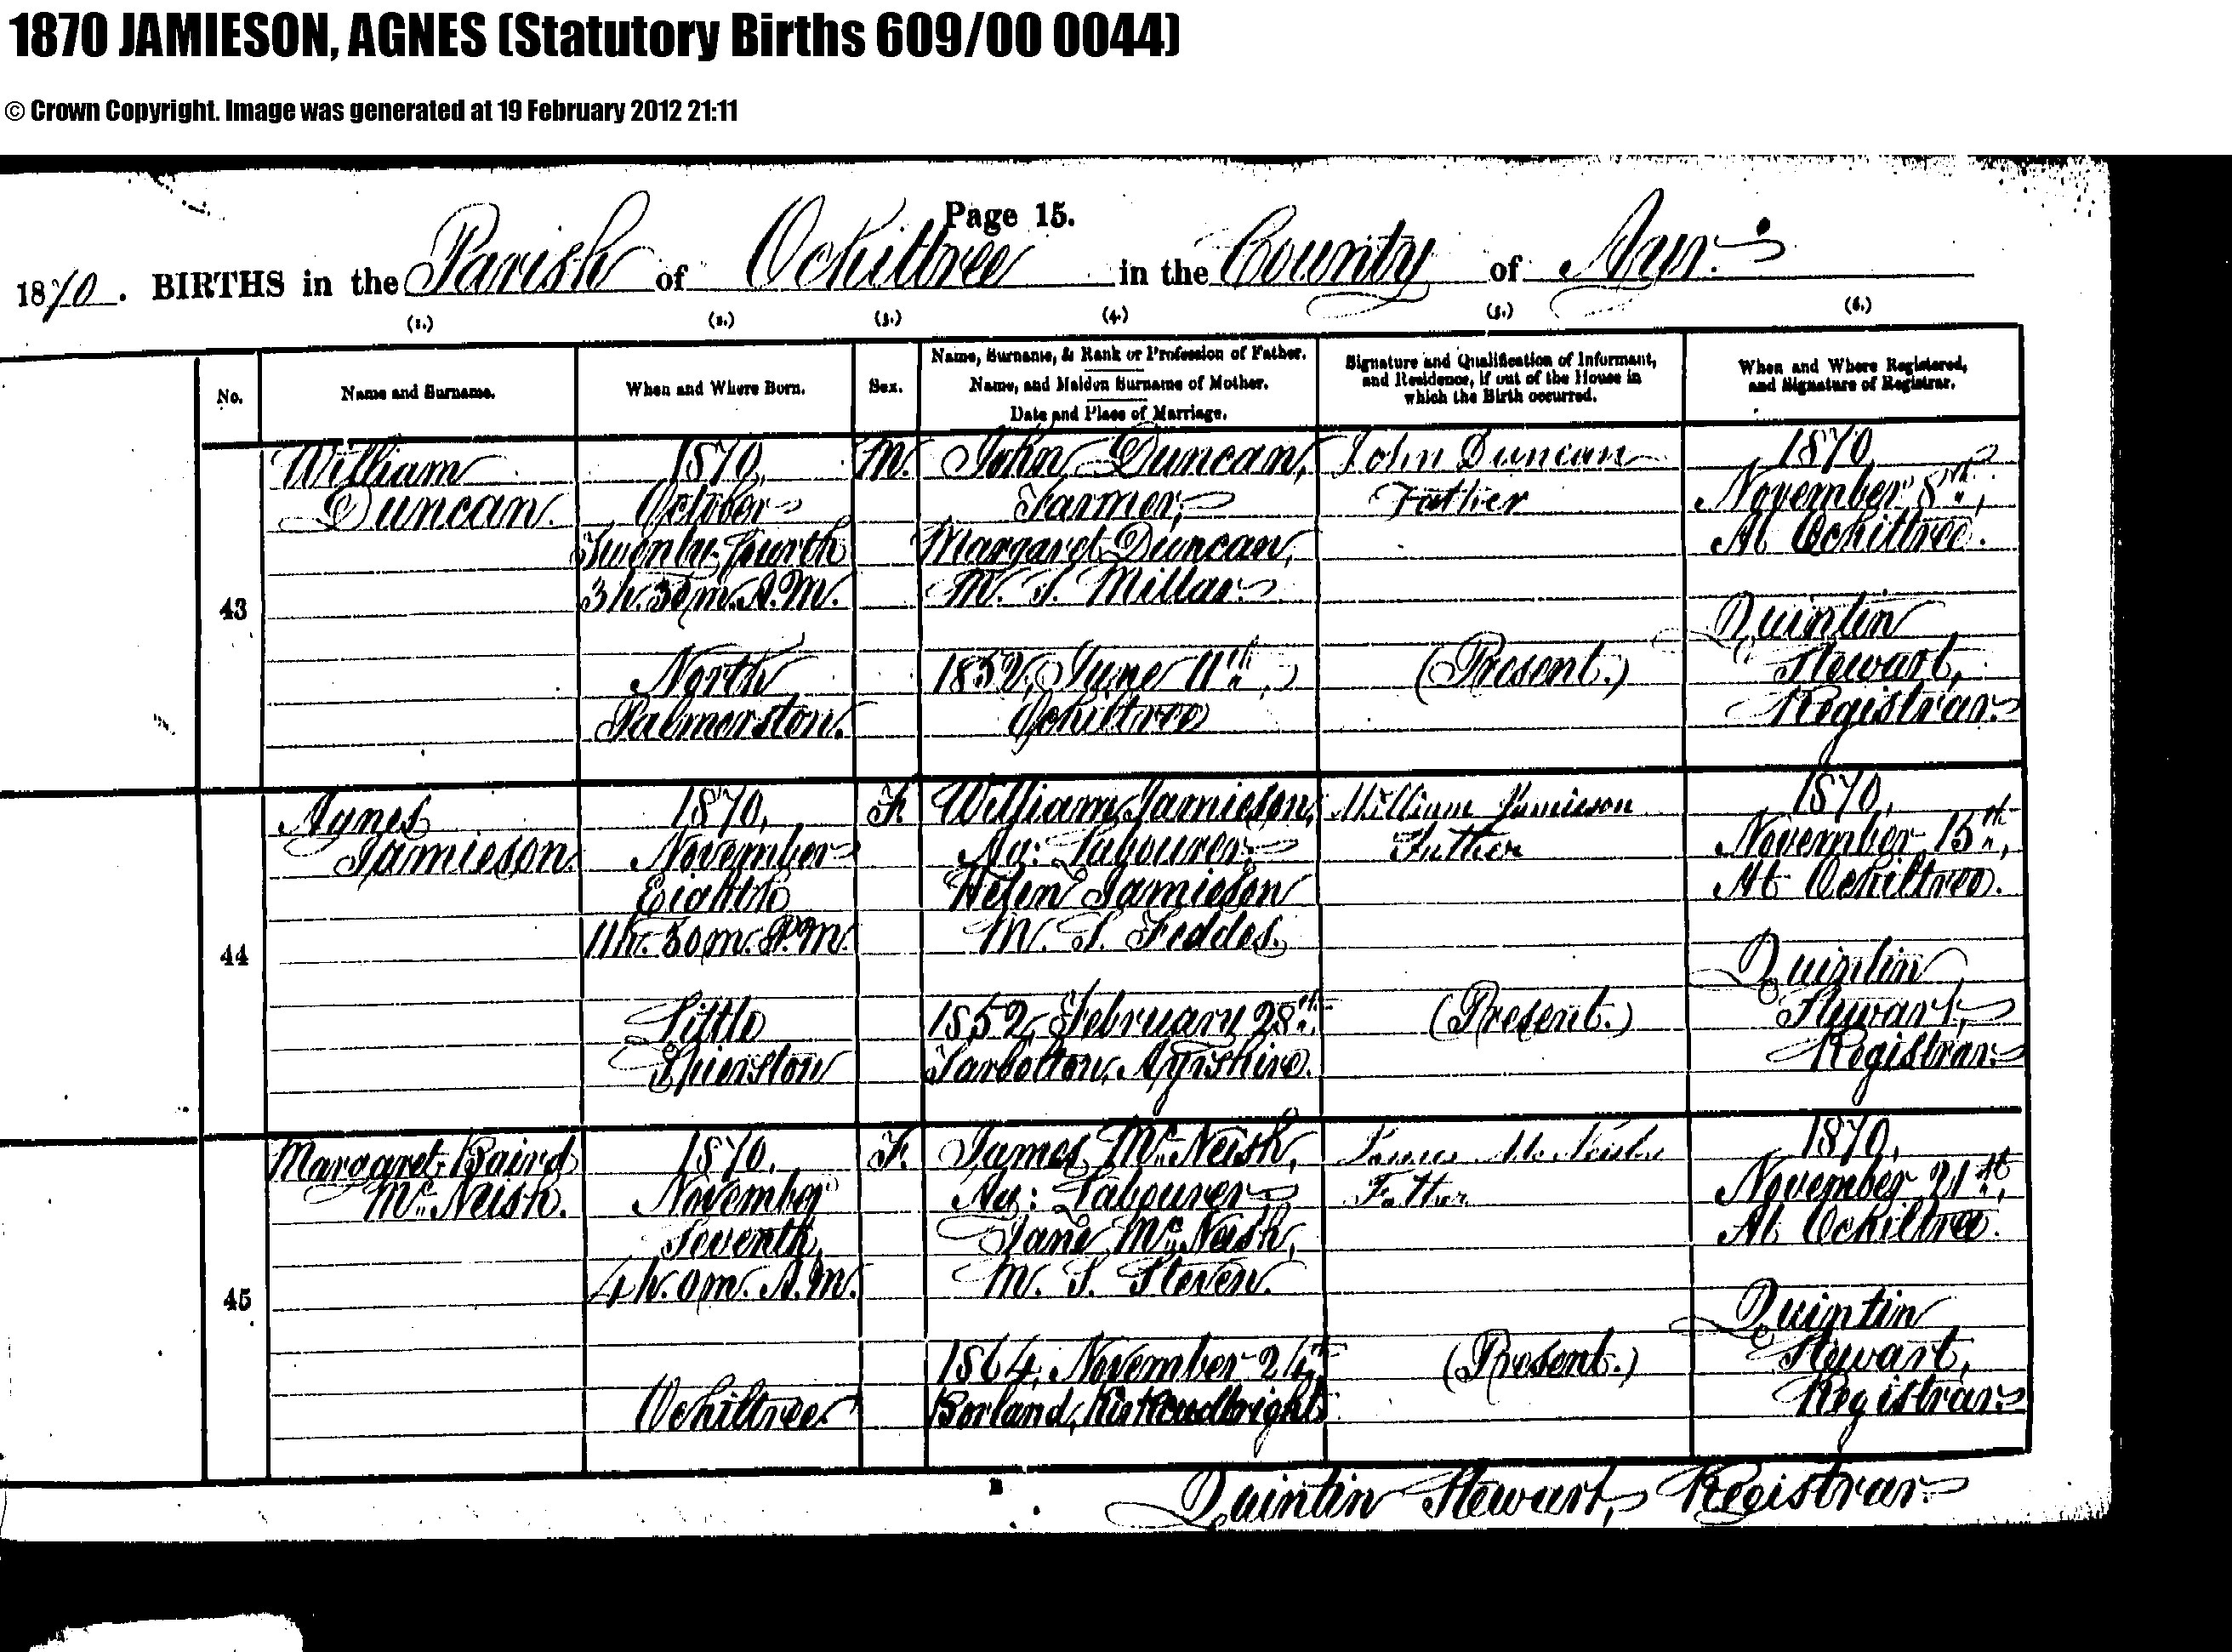 1870 JAMIESON, AGNES (Statutory Births 609/00 0044)
© Crown Copyright. Image was generated at 19 February 2012 21:11
Page 15.
1870. BIRTHS in the Parish of Ochiltree in the County of Ayr.
(1.) (2.) (3.) (4.) (5.) (6.)
No.
Name and Surname.
When and Where Born.
Sex.
Name, Surname, & Rank or Profession of Father.
Name, and Maiden Surname of Mother.
Date and Place of Marriage.
Signature and Qualification of Informant,
and Residence, if out of the House in
which the Birth occurred.
When and Where Registered,
and Signature of Registrar.
43
William
Duncan.
1870,
October
Twenty fourth
3h. 30m. A.M.
North
Palmerston.
M.
John Duncan,
Farmer,
Margaret Duncan,
M. S. Millar.
1852, June 11th,
Ochiltree
John Duncan
Father
(Present.)
1870,
November 8th,
At Ochiltree.
Quintin
Stewart,
Registrar.
44
Agnes
Jamieson.
1870,
November
Eighth
11h. 30m. P.M.
Little
Shierston
F.
William Jamieson,
Ag: Labourer,
Helen Jamieson
M. S. Feddes.
1852, February 28th,
Tarbolton, Ayrshire.
William Jamieson
Father
(Present.)
1870,
November 15th,
At Ochiltree.
Quintin
Stewart,
Registrar.
45
Margaret Baird
McNeish.
1870.
November
Seventh,
4h. 0m. A.M.
Ochiltree
F.
James McNeish,
Ag: Labourer
Jane McNeish,
M. S. Steven.
1864, November 24th
Borland, Kirkcudbright.
James McNeish
Father
(Present.)
1870,
November 21st,
At Ochiltree.
Quintin
Stewart,
Registrar.
Quintin Stewart, Registrar.